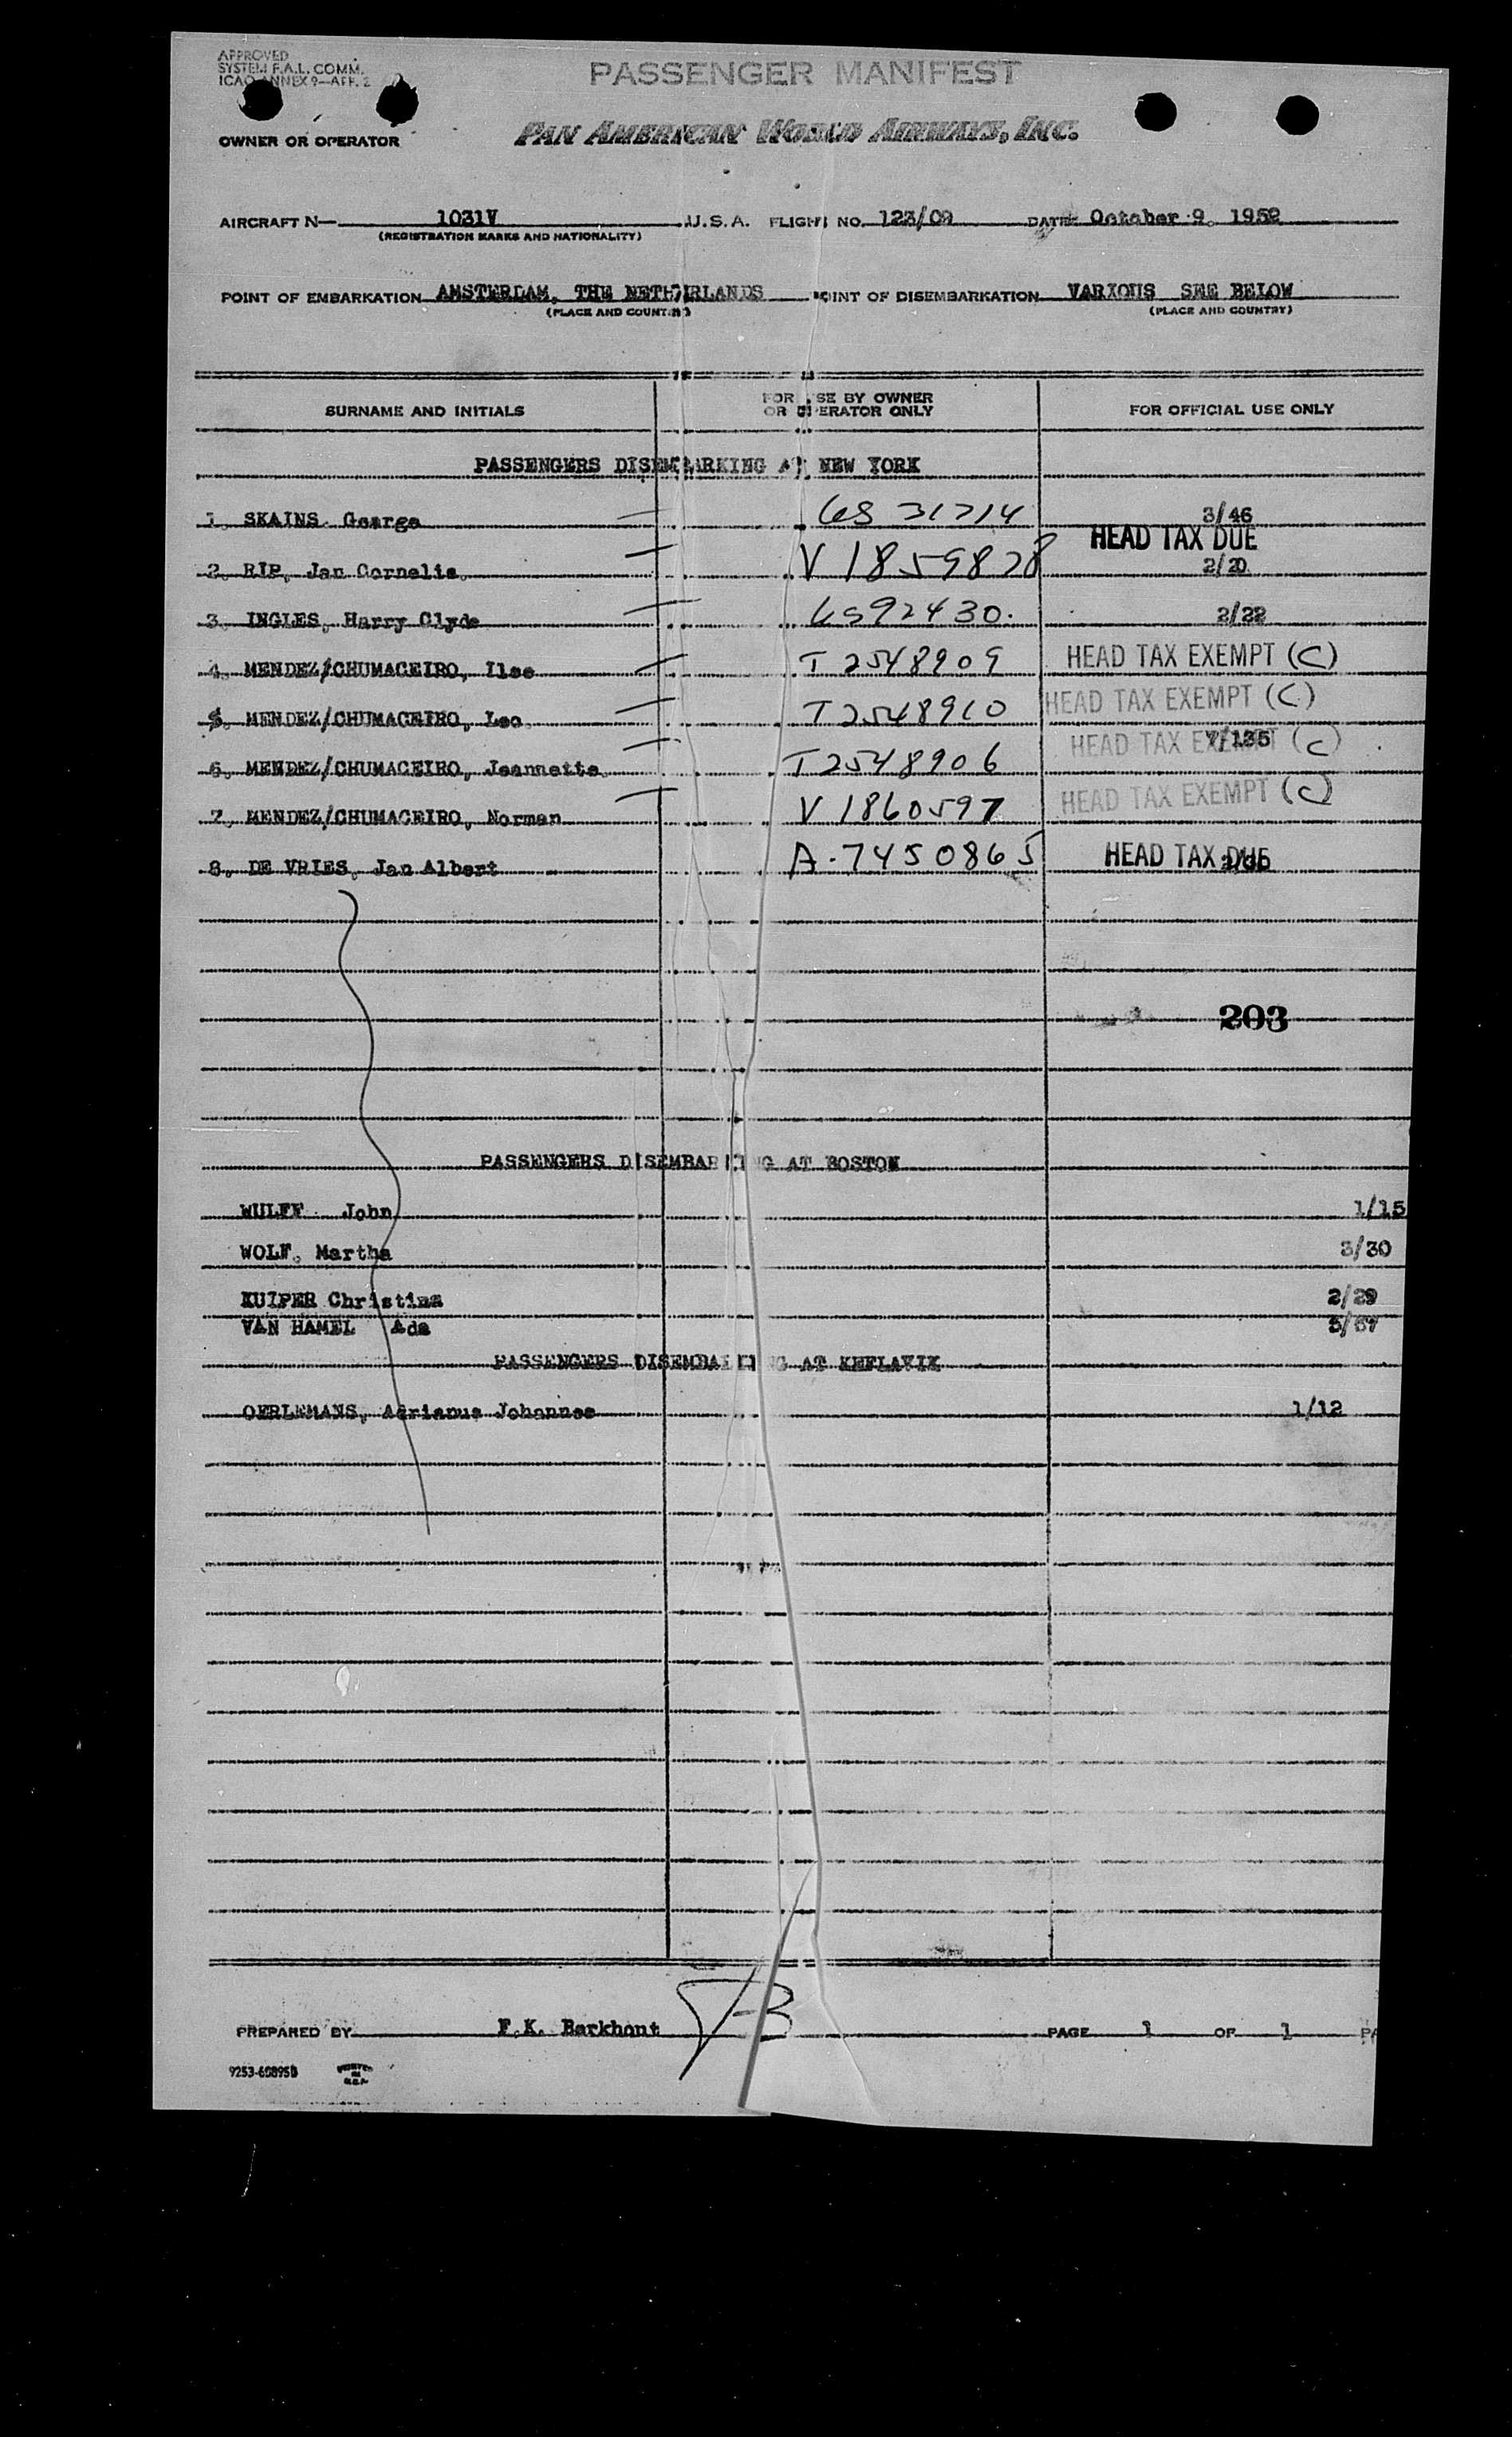 APPROVED
SYSTEM F.A.L. COMM.
ICAO ANNEX 9—APP. 2
PASSENGER MANIFEST
OWNER OR OPERATOR PAN AMERICAN WORLD AIRWAYS, INC.
AIRCRAFT N— 1031V U.S.A. FLIGHT NO. 123/09 DATE October 9, 1952
(REGISTRATION MARKS AND NATIONALITY)
POINT OF EMBARKATION AMSTERDAM, THE NETHERLANDS POINT OF DISEMBARKATION VARIOUS SEE BELOW
(PLACE AND COUNTRY) (PLACE AND COUNTRY)
SURNAME AND INITIALS FOR USE BY OWNER OR OPERATOR ONLY FOR OFFICIAL USE ONLY
PASSENGERS DISEMBARKING AT NEW YORK
1. SKAINS George 3/46
HEAD TAX DUE
2. RIP, Jan Cornelis V 1859828 2/20
3. INGLES, Harry Clyde 2/22
4. MENDEZ/CHUMACEIRO, Ilse T 2548909 HEAD TAX EXEMPT (C)
5. MENDEZ/CHUMACEIRO, Leo T 2548910 HEAD TAX EXEMPT (C)
6. MENDEZ/CHUMACEIRO, Jeannette T 2548906 HEAD TAX EXEMPT (C) 7/135
7. MENDEZ/CHUMACEIRO, Norman V 1860597 HEAD TAX EXEMPT (C)
8. DE VRIES, Jan Albert A-7450865 HEAD TAX DUE
203
PASSENGERS DISEMBARKING AT BOSTON
WULFF John 1/15
WOLF, Martha 3/30
KUIPER Christina 2/29
VAN HAMEL Ada 3/67
PASSENGERS DISEMBARKING AT KEFLAVIK
OERLEMANS, Adrianus Johannes 1/12
PREPARED BY F.K. Barkhout PAGE 1 OF 1
9253-60895B PRINTED IN U.S.A.